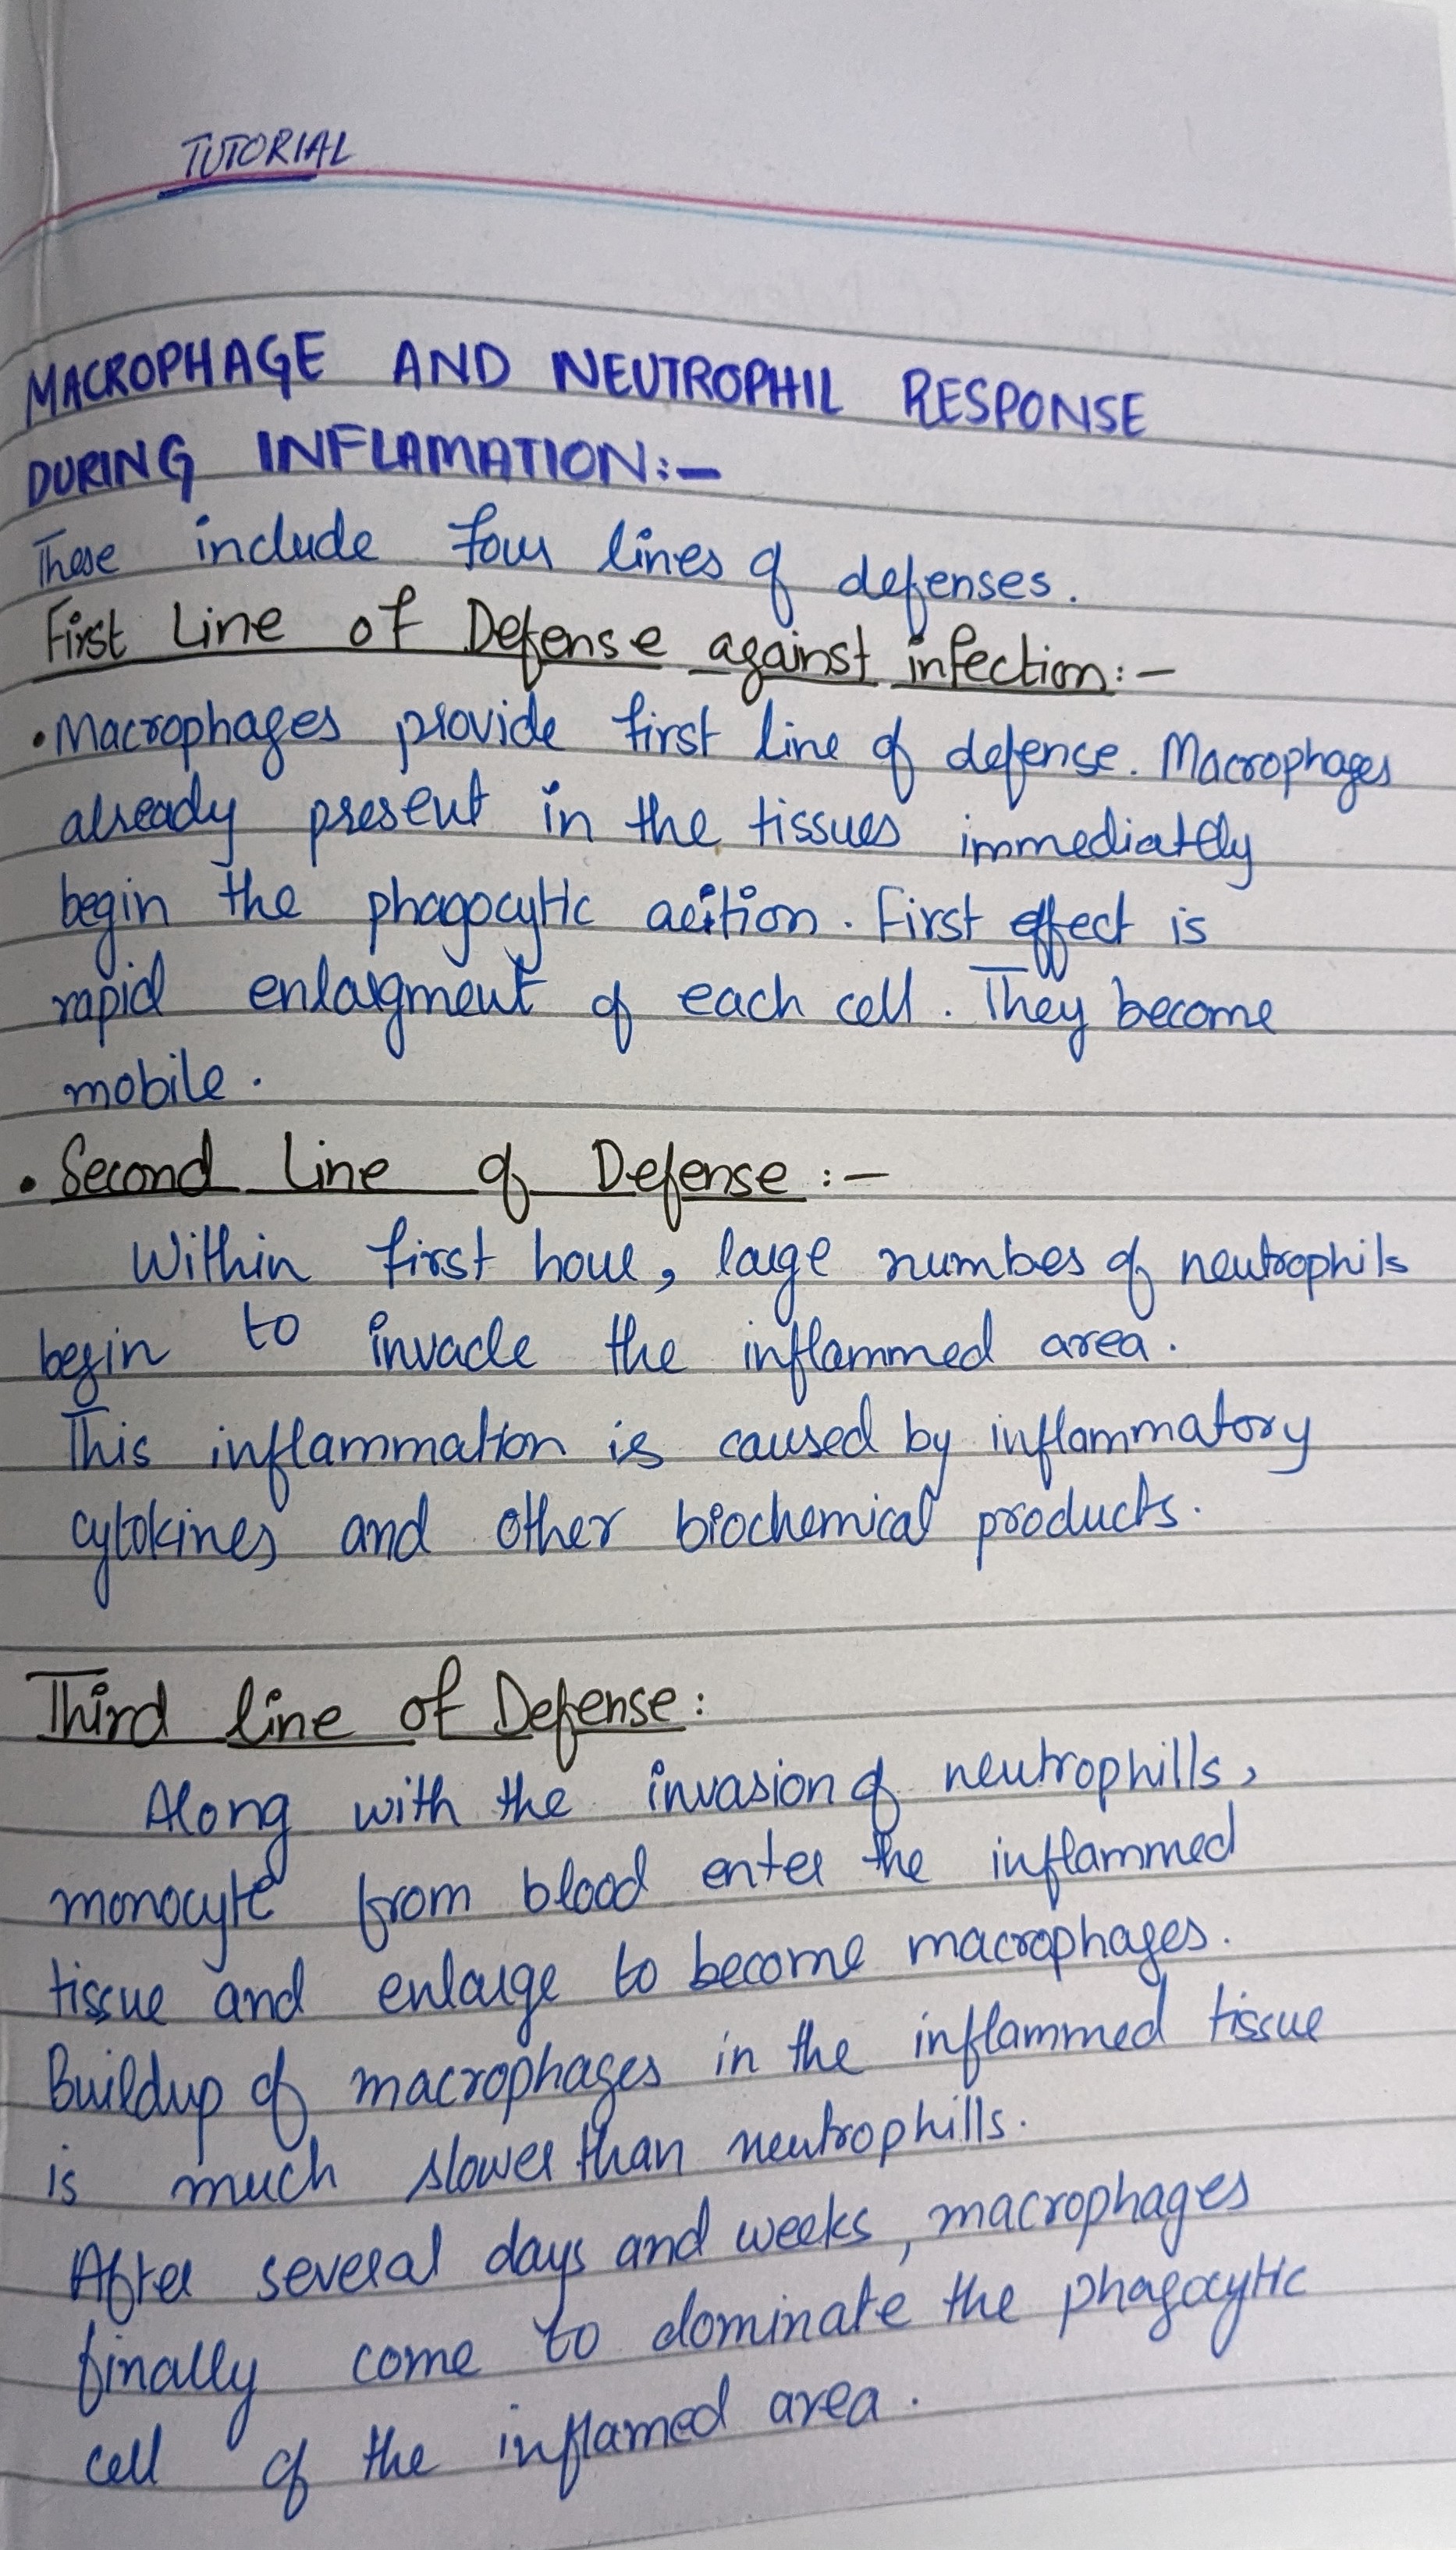 TUTORIAL
MACROPHAGE AND NEUTROPHIL RESPONSE
DURING INFLAMATION:-
These include four lines of defenses.
First Line of Defense against infection:-
•Macrophages provide first line of defense. Macrophages
already present in the tissues immediately
begin the phagocytic action. First effect is
rapid enlargment of each cell. They become
mobile.
• Second Line of Defense :-
Within first hour, large number of neutrophils
begin to invade the inflammed area.
This inflammation is caused by inflammatory
cytokines and other biochemical products.
Third line of Defense:
Along with the invasion of neutrophills,
monocyte from blood enter the inflammed
tissue and enlarge to become macrophages.
Buildup of macrophages in the inflammed tissue
is much slower than neutrophills.
After several days and weeks, macrophages
finally come to dominate the phagocytic
cell of the inflamed area.